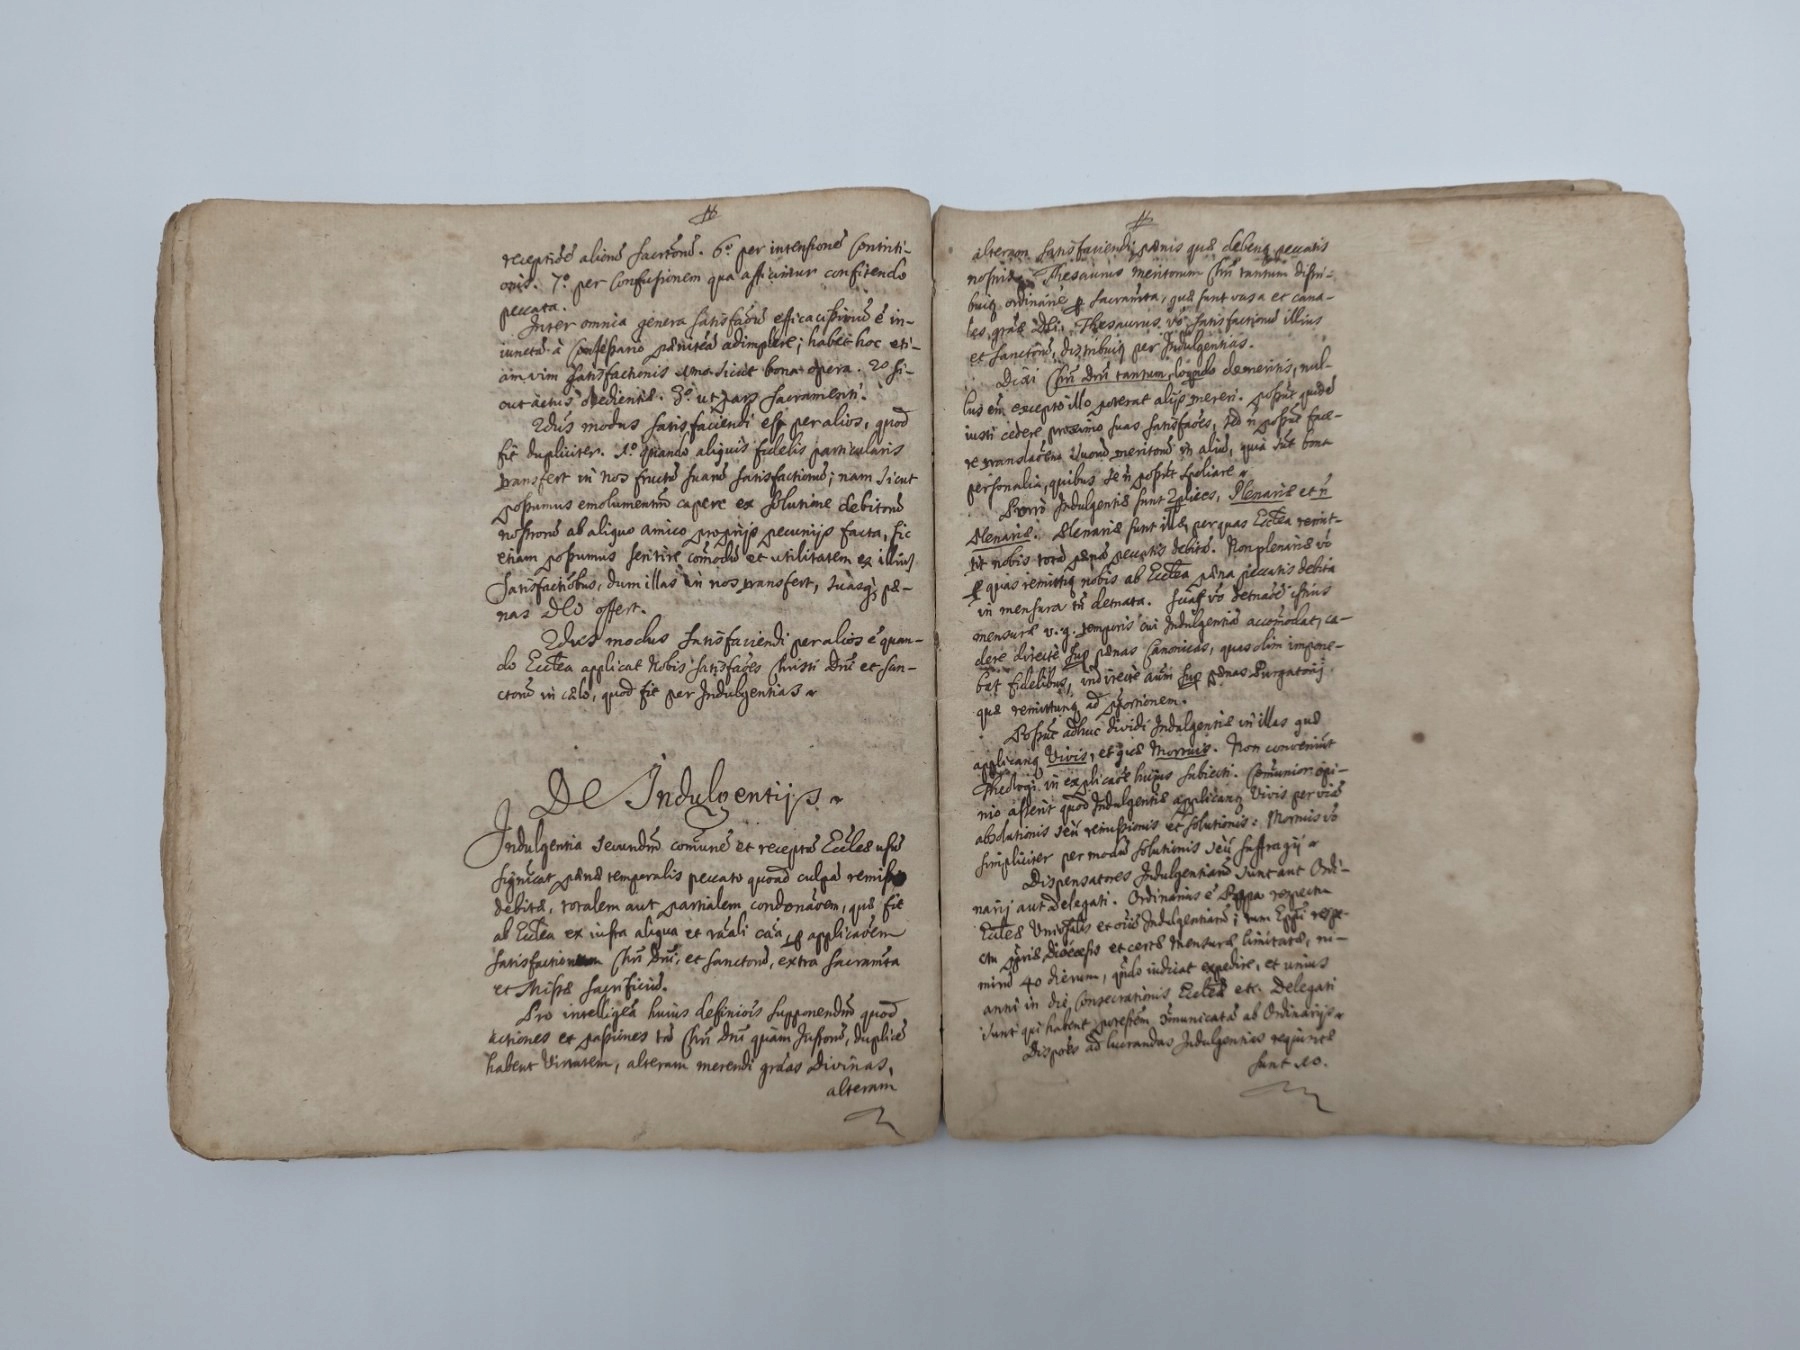 receptiõe aliorũ sacrtorũ. 6.º per intensionẽ contriti-
onis. 7.º per confusionem qua afficiuntur confitendo
peccata.
Inter omnia genera satisfaõnũ efficacissimũ ẽ in-
iunctã à Confessario pænitẽã adimplere; habet hoc eti-
am vim satisfactionis sicut bona opera. 2º si-
cut actus obedientiæ. 3.º ut pars Sacramenti.
2dus modus satisfaciendi est per alios, quod
fit dupliciter. 1.º quando aliquis fidelis particularis
transfert in nos fructũ suarũ satisfactionũ; nam sicut
possumus emolumentũ capere ex solutione debitorũ
nostrorũ ab aliquo amico proprijs pecunijs facta, sic
etiam possumus sentire comodũ et utilitatem ex illius
Satisfactiõbus, dum illas in nos transfert, suasq; pæ-
nas Dẽo offert.
2dus modus satisfaciendi per alios ẽ quan-
do Ecctẽa applicat nobis satisfaões Christi Dnĩ et san-
ctorũ in cælo, quod fit per Indulgentias
De Indulgentijs
Indulgentia secundũ comunẽ et receptũ Eccĩæ usũ
significat pænæ temporalis peccato quoad culpã remisso
debitæ, totalem aut partialem condonãõem, quæ fit
ab Ecctẽa ex iusta aliqua et rãali cãa, ꝑ applicãõem
satisfactionum Chrĩ Dnĩ, et sanctorũ, extra sacramta
et Missæ sacrificiũ.
Pro intelligẽa huius definiõis supponendũ quod
actiones et passiones tã Chrĩ Dnĩ quàm Iustorũ, duplicẽ
habent virtutem, alteram merendi grãas Divinas,
alteram
alteram satisfaciendi pænis quæ debentᷣ peccatis
nostris. Thesaurus meritorum Chrĩ tantum distri-
buitᷣ ordinariè ꝑ sacramta, quæ sunt vasa et cana-
les grãæ Dẽi. Thesaurus vò satisfactionũ illius
et sanctorũ, distribuitᷣ per Indulgentias.
Dixi Chrĩ Dnĩ tantum, loqndo de meritis, nul-
lus enĩ excepto illo poterat alijs mereri. possũt quidẽ
iusti cedere proximo suas satisfaões, sed ñ possũt face-
re translaõem suorũ meritorũ in aliũ, quia sũt bona
personalia, quibus se ñ possũt spoliare
Porrò Indulgentiæ sunt 2plices, Plenariæ et ñ
Plenariæ. Plenariæ sunt illæ, per quas Ecctẽa remit-
tit nobis totã pænã peccatis debitã. Non plenariæ vò
ꝑ quas remittitᷣ nobis ab Ecctẽa pæna peccatis debita
in mensura tñ detnata. Scias vò detnãõẽ istius
mensuræ v. g. temporis cui Indulgentiã accomodat, ca-
dere directè suꝑ pænas Canonicas, quas olim impone-
bat fidelibus, indirectè autẽ suꝑ pænas Purgatorij
quæ remittuntᷣ ad portionem.
Possũt adhuc dividi Indulgentiæ in illas quæ
applicantᷣ Vivis, et quæ Mortuis. Non conveniũt
Theologi in explicaõe hujus subiecti. Comunior opi-
nio asserit quod Indulgentiæ applicantᷣ Vivis per viã
absolutionis seũ remissionis et solutionis: Mortuis vò
simpliciter per modũ solutionis seũ suffragij
Dispensatores Indulgentiarũ sunt aut Ordi-
narij aut delegati. Ordinarius ẽ Pappa respectu
Eccĩæ Univsalis et oĩũ Indulgentiarũ; tum Eppĩ respe-
ctu ꝓpriæ diœcesis et certæ mensuræ limitatæ, ni-
mirũ 40 dierum, qũdo iudicat expedire, et unius
anni in die consecrationis Eccĩæ etc. Delegati
sunt qui habent potestẽm comunicatã ab Ordinarijs
Disposẽs ad lucrandas Indulgentias requisitæ
sunt 10.